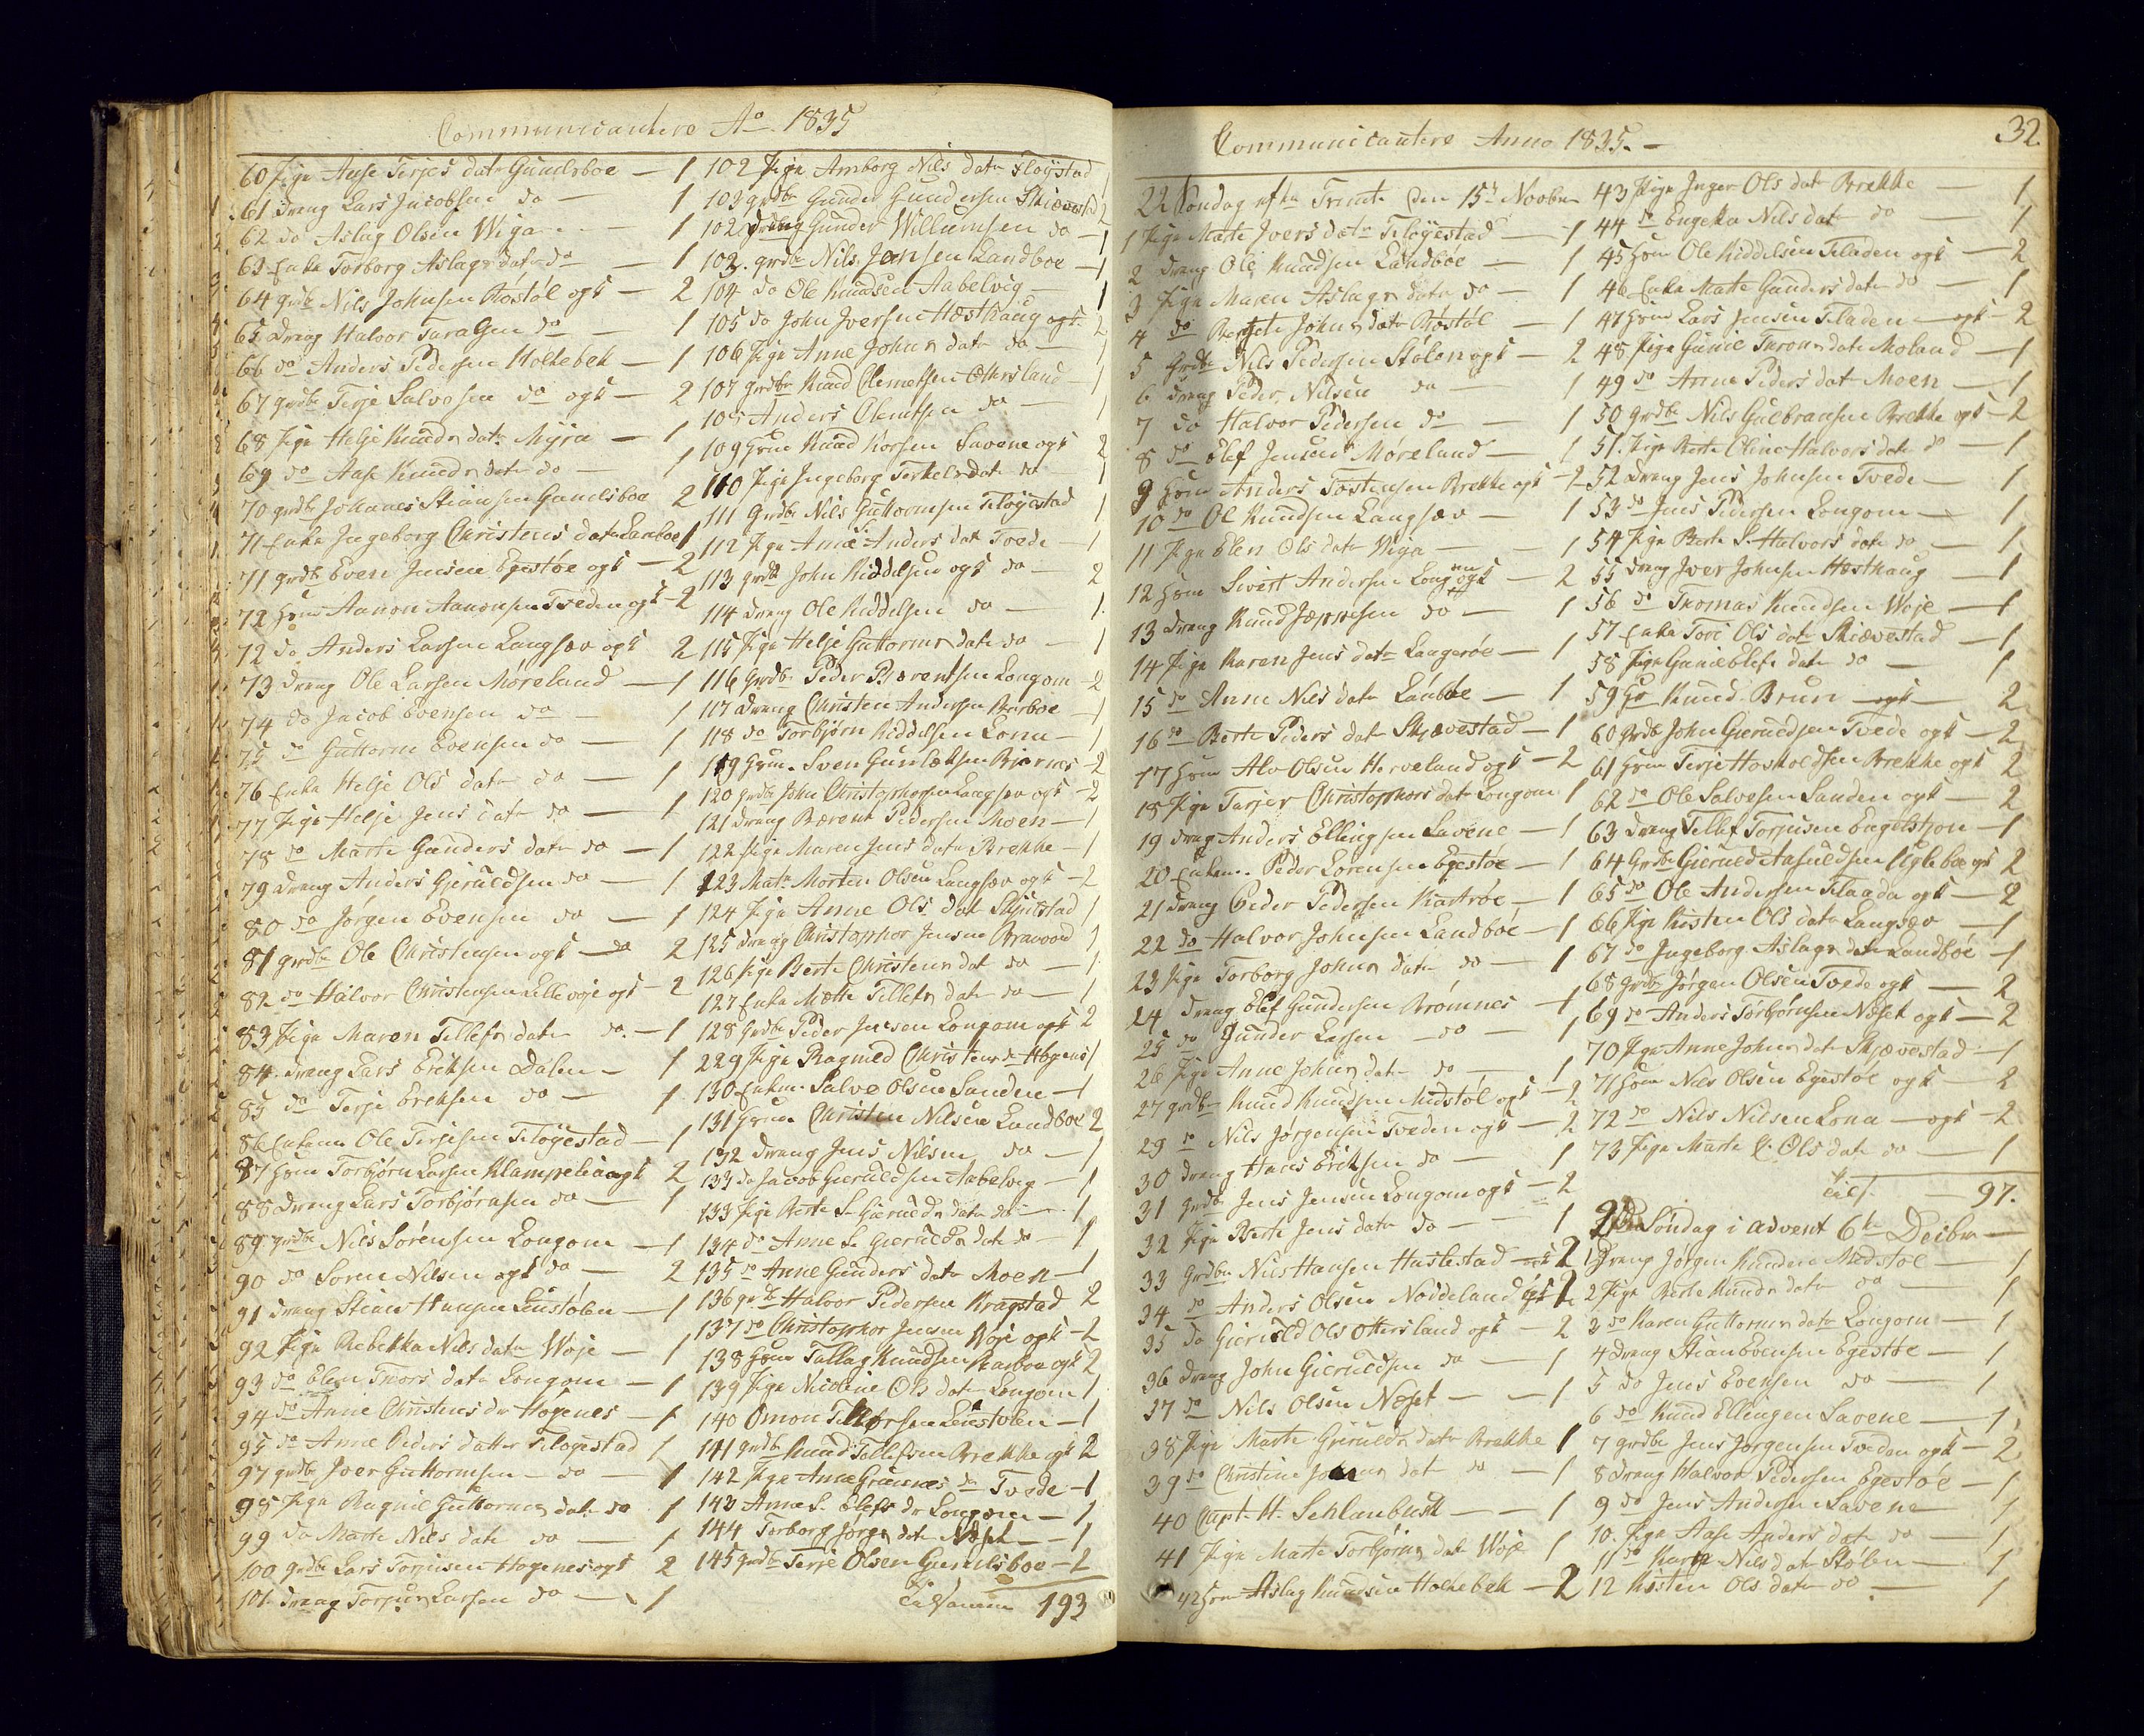 Communicantere Ao. 1835
60 Pige Aase Terjes datr Gundersboe — 1
61 Dreng Lars Jacobsen do — 1
62 do Aslag Olsen Wiga — 1
63 Enke Torborg Aslags datr do — 1
64 grdbr Nils Johnsen Røstøl ogk — 2
65 Dreng Halvor Taralsen do — 1
66 do Anders Pedersen Holkebek — 1
67 grdbr Terje Salvesen do ogk — 2
68 Pige Helje Knuds datr Myra — 1
69 do Aase Knuds datr do — 1
70 grdbr Johanes Stiansen Gundersboe 2
71 Enke Ingeborg Christens datr Lanboe 1
71 grdbr Even Jensen Egestøe ogk — 2
72 Huus Aanon Aanonsen Tveden ogk — 2
72 do Anders Larsen Langsæv ogk 2
73 Dreng Ole Larsen Møreland — 1
74 do Jacob Evensen do — 1
75 do Guttorm Evensen do — 1
76 Enke Helje Ols datr do — 1
77 Pige Helje Jens datr do — 1
78 do Marte Gunders datr do — 1
79 Dreng Anders Gjeruldsen do — 1
80 do Jørgen Evensen do — 1
81 grdbr Ole Christensen ogk — do 2
82 do Halvor Christensen Ellevøje ogk — 2
83 Pige Maren Tellefs datr do — 1
84 Dreng Lars Eriksen Dalen — 1
85 do Terje Eriksen do — 1
86 Enkem Ole Terjesen Fløgestad — 1
87 Huus Torbjørn Larsen Klampelia ogk 2
88 Dreng Lars Torbjørnsen do — 1
89 grdbr Nils Sørensen Longom — 1
90 do Søren Nilsen ogk do — 2
91 Dreng Stian Hansen Leistølen — 1
92 Pige Rebekka Nils datr Wøje — 1
93 do Elen Tvors datr Longom — 1
94 do Anne Christens dr Høgenes — 1
95 do Anne Peders datter Fløgestad 1
97 grdbr Iver Guttormsen — do — 1
98 Pige Ragnil Guttorms datr do 1
99 do Marte Nils datr do — 1
100 grdbr Lars Torjusen Høgenes ogk 2
101 Dreng Torjus Larsen do — 1
102 Pige Amborg Nils datr Fløystad 1
103 grdbr Gunder Gundersen Skiævestad 2
102 Dreng Gunder Willumsen do — 1
103 grdbr Nils Jensen Landboe — 1
104 do Ole Knudsen Aabelvig — 1
105 do John Iversen Hæsthaug ogk 2
106 Pige Anne Johns datr do — 1
107 grdbr Knud Clemetsen Ottersland — 1
108 Anders Clemetsen do — 1
109 Huus Knud Korsen Savene ogk 2
110 Pige Ingeborg Terkels dat do 1
111 Grdbr Nils Guttormsen Fløgestad 1
112 Pige Anne Anders dat Tvede — 1
113 grdbr John Kiddelsen ogk do — 2
114 Dreng Ole Kiddelsen do — 1
115 Pige Helje Guttorms datr do — 1
116 Grdbr Peder Berentsen Longom — 2
117 Dreng Christen Andersen Barboe — 1
118 do Torbjørn Kiddelsen Lona — 1
119 Huus Sven Gunlæksen Biørnes — 2
120 grdbr John Christophersen Langsæv ogk — 2
121 Dreng Berent Pedersen Moen — 1
122 Pige Maren Jens datr Brekke — 1
123 Matr Morten Olsen Langsæv ogk — 2
124 Pige Anne Ols dat Skjulstad 1
125 Dreng Christopher Jensen Bravoord 1
126 Pige Berte Christens dat do — 1
127 Enke Mætte Tellefs datr do — 1
128 Grdbr Peder Jensen Longom ogk 2
229 Pige Ragnild Christens dr Høgenes 1
130 Enkem Salve Olsen Sanden — 1
131 Huus Christen Nilsen Landboe 2
132 Dreng Jens Nilsen do — 1
133 do Jacob Gieruldsen Aabelvig — 1
133 Pige Berte S. Gierulds datr do — 1
134 do Anne S. Gierulds datr do — 1
135 do Anne Gunders datr Moen — 1
136 grdbr Halvor Pedersen Kragstad 2
137 do Christopher Jensen Wøje ogk — 2
138 Huus Tallag Knudsen Barboe ogk 2
139 Pige Nicoline Ols datr Longom 1
140 Omon Tellefsen Leistølen — 1
141 grdbr Knud Tellefsen Brekke ogk 2
142 Pige Anne Grunnes dr Tvede — 1
143 Anne S. Elefs dr Longom — 1
144 Torborg Jørgs datr Næset — 1
145 grdbr Terje Olsen Gundersboe — 2
Tilsamen 193
Communicantere Anno 1835. —
32
22 Søndag efter Trinit. den 15de Novbr
1 Pige Marte Ivers datr Fløgestad — 1
2 Dreng Ole Knudsen Landboe — 1
3 Pige Maren Aslags datr do — 1
4 do Bergete Johns datr Røstøl — 1
5 Grdbr Nils Pedersen Stølen ogk — 2
6 Dreng Peder Nilsen do — 1
7 do Halvor Pedersen do — 1
8 do Elef Jensen Møreland — 1
9 Huus Anders Tostensen Brekke ogk — 2
10 do Ol Knudsen Langsæv — 1
11 Pige Elen Ols datr Wiga — 1
12 Huus Sivert Andersen Longom ogk — 2
13 Dreng Knud Jeppesen do — 1
14 Pige Karen Jens datr Langerøe — 1
15 do Anne Nils datr Lanboe — 1
16 do Berte Peders datr Skjævestad — 1
17 Huus Alv Olsen Herveland ogk — 2
18 Pige Tarjer Christophers datr Longom 1
19 Dreng Anders Ellingsen Savene — 1
20 Enkem. Peder Lorensen Egestøe — 1
21 Dreng Peder Pedersen Kastrøe — 1
22 do Halvor Johnsen Landboe — 1
23 Pige Torborg Johns datr do — 1
24 Dreng Elef Gundersen Brømnes — 1
25 do Gunder Larsen — do — 1
26 Pige Anne Johns datr do — 1
27 grdbr Knud Knudsen Midstøl ogk — 2
29 do Nils Jørgensen Tveden ogk — 2
30 Dreng Hans Eriksen do — 1
31 grdbr Jens Jensen Longom ogk — 2
32 Pige Berte Jens datr do — 1
33 Grdbr Nils Hansen Haslestad ogk 2
34 do Anders Olsen Nøddeland ogk 2
35 do Gieruld Ols Ottersland ogk — 2
36 Dreng John Gieruldsen do — 1
37 do Nils Olsen Næset — 1
38 Pige Marte Gierulds datr Brekke 1
39 do Christine Johns dat do — 1
40 Capt. H. Schlanbusk — 1
41 Pige Marte Torbjørns datr Wøje 1
42 Huus Aslag Knudsen Holkebek — 2
43 Pige Inger Ols dat Brekke — 1
44 do Engeka Nils dat do — 1
45 Huus Ole Kiddelsen Fladen ogk — 2
46 Enke Marte Gunders datr do — 1
47 Huus Lars Jensen Fladen — ogk — 2
48 Pige Gunie Trons datr Moland — 1
49 do Anne Peders dat Moen — 1
50 grdbr Nils Gulbransen Brekke ogk — 2
51 Pige Berte Oline Halvors datr do — 1
52 Dreng Jens Johnsen Tvede — 1
53 do Jens Pedersen Longom — 1
54 Pige Berte S. Halvors datr do — 1
55 Dreng Iver Johnsen Hæsthaug — 1
56 do Thomas Knudsen Wøje — 1
57 Enke Tore Ols datr Skiævestad — 1
58 Pige Gunie Elefs datr do — 1
59 Hr Knud Brun — ogk — 2
60 Grdbr John Gieruldsen Tvede ogk — 2
61 Huus Terje Hoskoldsen Brekke ogk 2
62 do Ole Salvesen Sanden ogk — 2
63 Dreng Tellef Torjusen Engelskøn — 1
64 Grdbr Gieruld Aasuldsen Ugleboe ogk 2
65 do Ole Andersen Flaada ogk — 2
66 Pige Kisten Ols datr Langsæv — 1
67 do Ingeborg Aslags datr Landbøe — 1
68 Grdbr Jørgen Olsen Tvede ogk — 2
69 do Anders Torbjørnsen Næset ogk — 2
70 Pige Anne Johns datr Skjævestad — 1
71 Huus Nils Olsen Egestøe ogk — 2
72 do Nils Nilsen Lona — ogk — 2
73 Pige Marte K. Ols datr do — 1
Tils. — 97.
2den Søndag i Advent 6te Decbr —
1 Dreng Jørgen Knudsen Midstøl — 1
2 Pige Berte Knuds datr do — 1
3 do Karen Guttorms datr Longom — 1
4 Dreng Stian Evensen Egestøe — 1
5 do Jens Evensen do — 1
6 do Knud Ellingen Savene — 1
7 grdbr Jens Jørgensen Tveden ogk — 2
8 Dreng Halvor Pedersen Egestøe — 1
9 do Jens Andersen Savene 1
10 Pige Aase Anders datr do — 1
11 do Karen Nils datr Stølen — 1
12 Kisten Ols datr do — 1